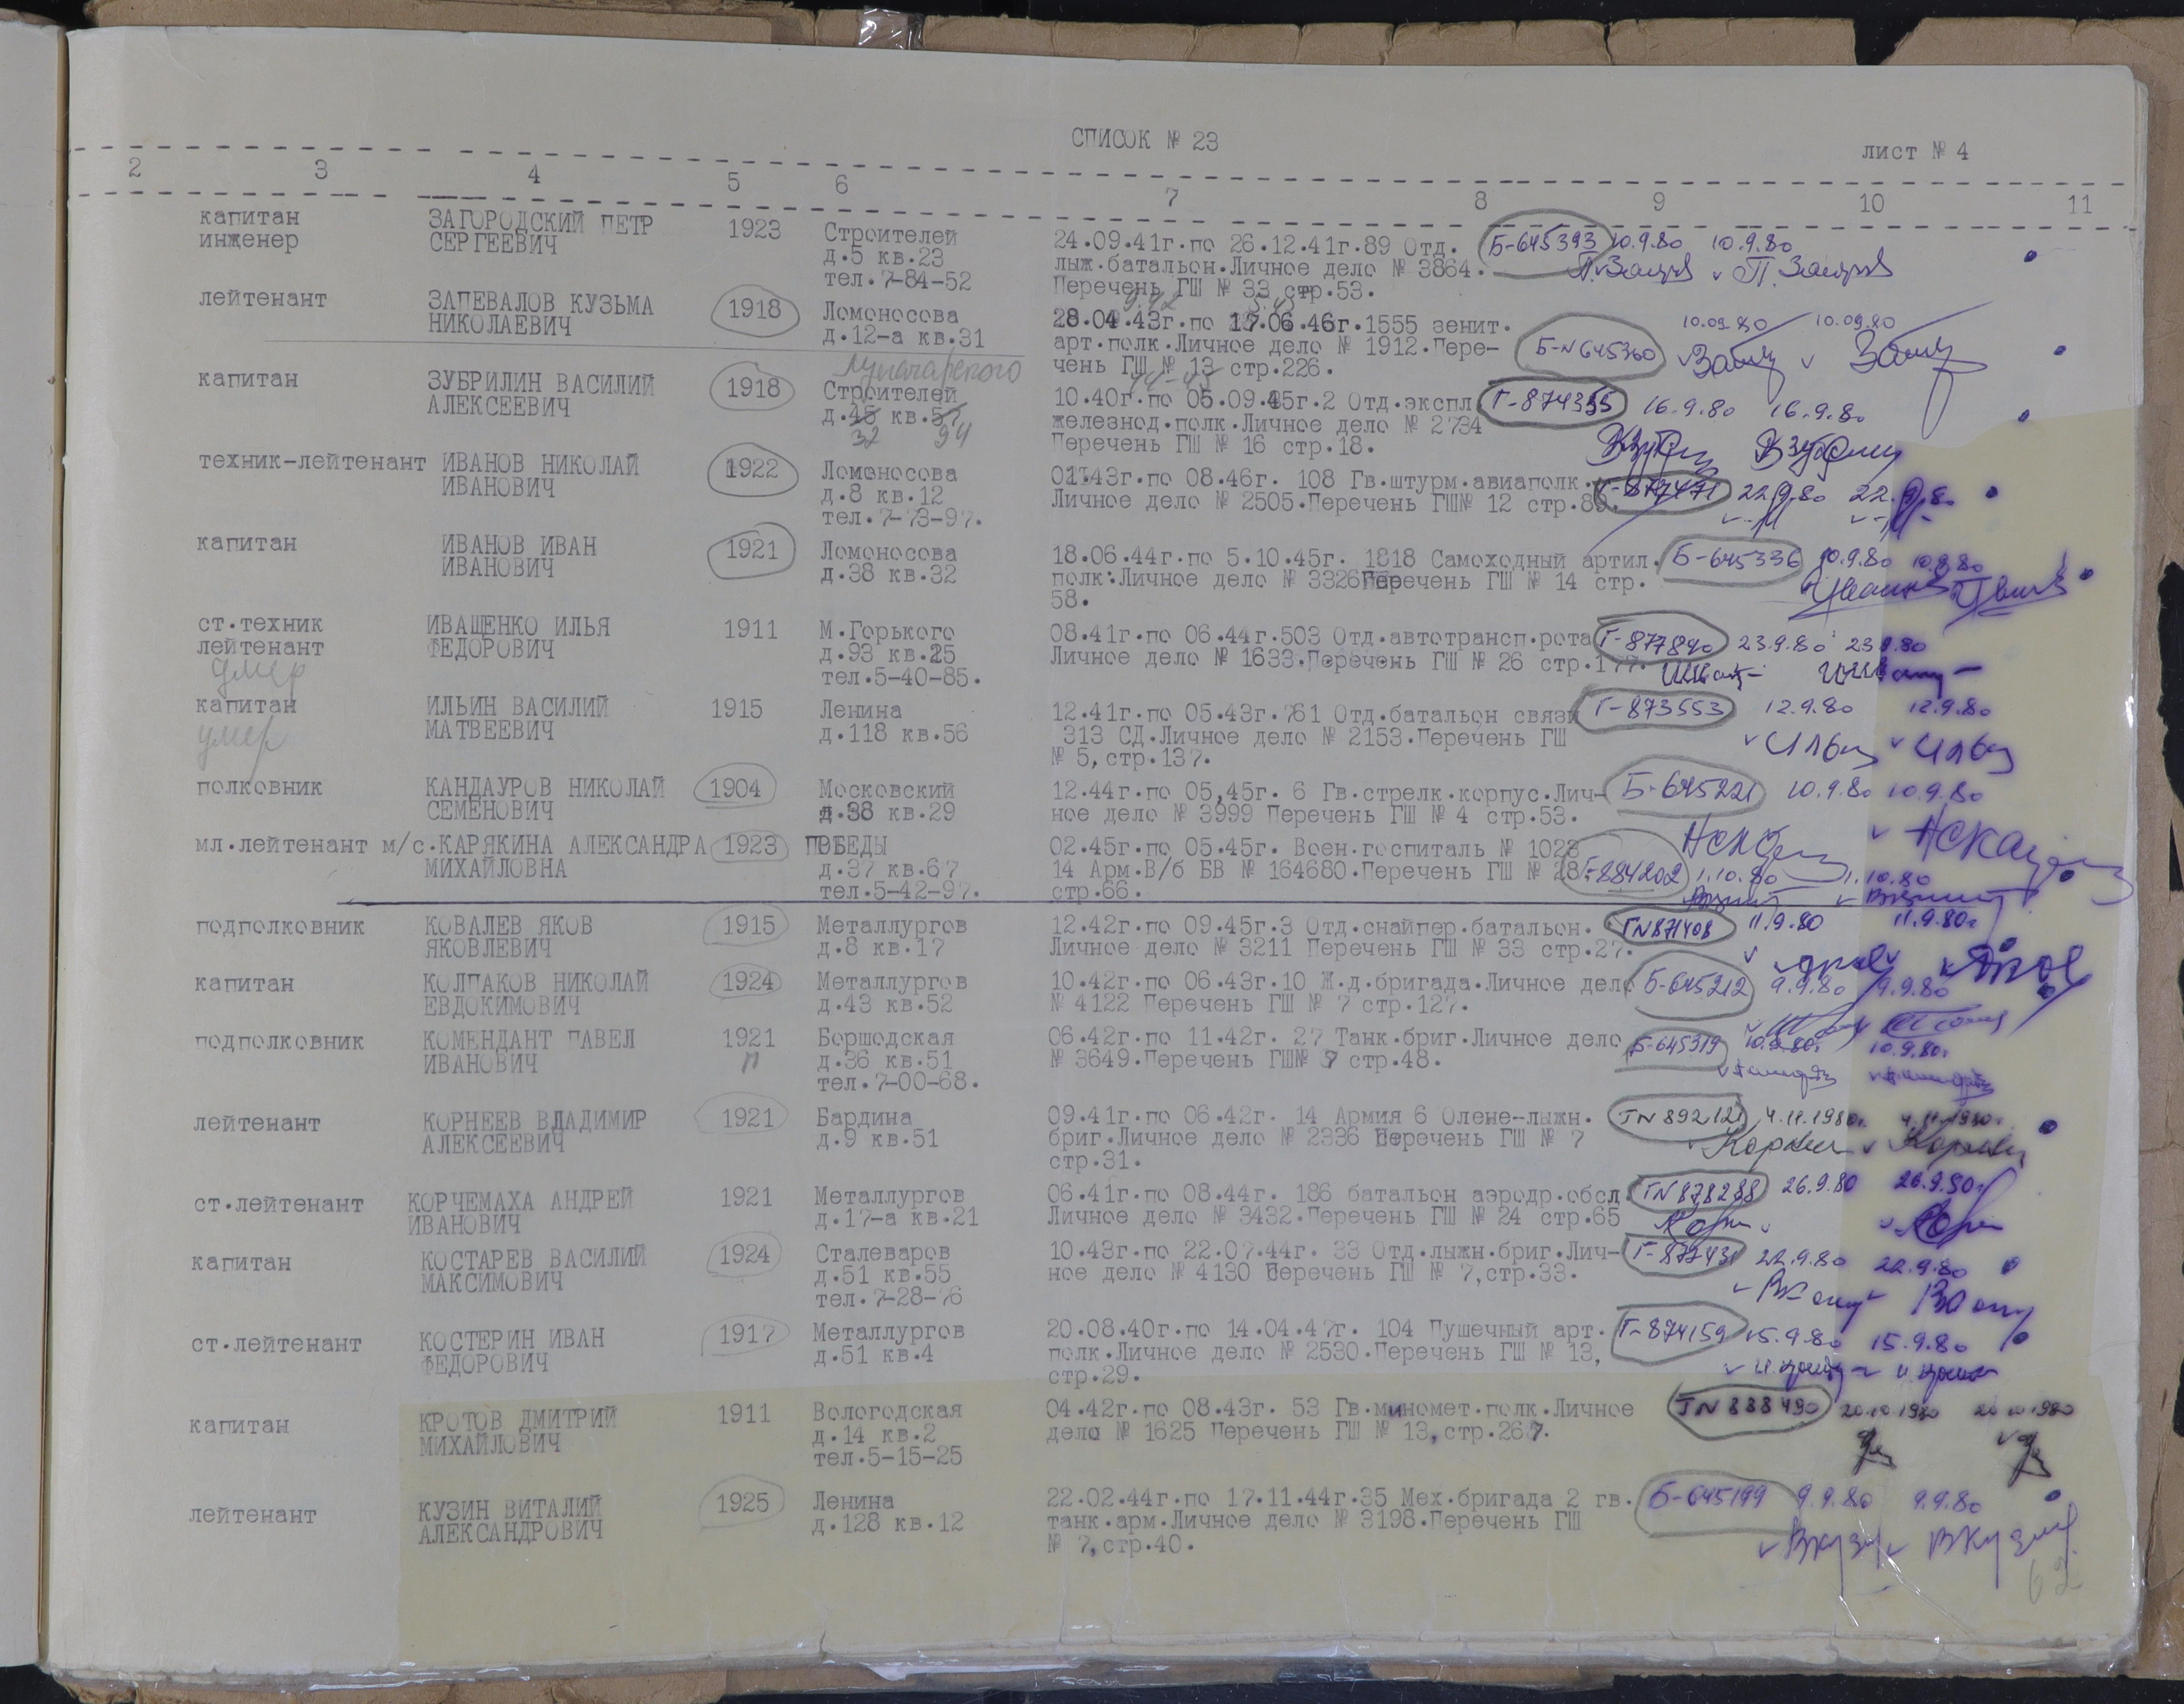 СПИСОК № 23
лист № 4
2 3 4 5 6 7 8 9 10 11
капитан ЗАГОРОДСКИЙ ПЕТР 1923 Строителей 24.09.41г.по 26.12.41г.89 Отд. Б-645393 10.9.80 10.9.80
инженер СЕРГЕЕВИЧ д.5 кв.23 лыж.батальон.Личное дело № 3864.
тел.7-84-52 Перечень ГШ № 33 стр.53.
лейтенант ЗАПЕВАЛОВ КУЗЬМА 1918 Ломоносова 28.04.43г.по 17.06.46г.1555 зенит. 10.09.80 10.09.80
НИКОЛАЕВИЧ д.12-а кв.31 арт.полк.Личное дело № 1912.Пере- Б-N645360
чень ГШ № 13 стр.226.
Луначарского
капитан ЗУБРИЛИН ВАСИЛИЙ 1918 Строителей 10.40г.по 05.09.45г.2 Отд.экспл. Г-874355 16.9.80 16.9.80
АЛЕКСЕЕВИЧ д.45 кв.57 железнод.полк.Личное дело № 2734
32 94 Перечень ГШ № 16 стр.18.
техник-лейтенант ИВАНОВ НИКОЛАЙ 1922 Ломоносова 01.43г.по 08.46г. 108 Гв.штурм.авиаполк. Г-877471 22.9.80 22.9.80
ИВАНОВИЧ д.8 кв.12 Личное дело № 2505.Перечень ГШ№ 12 стр.89.
тел.7-73-97.
капитан ИВАНОВ ИВАН 1921 Ломоносова 18.06.44г.по 5.10.45г. 1818 Самоходный артил. Б-645336 10.9.80 10.9.80
ИВАНОВИЧ д.38 кв.32 полк.Личное дело № 3326 Перечень ГШ № 14 стр.
58.
ст.техник ИВАЩЕНКО ИЛЬЯ 1911 М.Горького 08.41г.по 06.44г.503 Отд.автотрансп.рота Г-877890 23.9.80 23.9.80
лейтенант ФЕДОРОВИЧ д.93 кв.25 Личное дело № 1633.Перечень ГШ № 26 стр.177.
умер тел.5-40-85.
капитан ИЛЬИН ВАСИЛИЙ 1915 Ленина 12.41г.по 05.43г.761 Отд.батальон связи Г-873553 12.9.80 12.9.80
умер МАТВЕЕВИЧ д.118 кв.56 313 СД.Личное дело № 2153.Перечень ГШ
№ 5,стр.137.
полковник КАНДАУРОВ НИКОЛАЙ 1904 Московский 12.44г.по 05,45г. 6 Гв.стрелк.корпус.Лич- Б-645221 10.9.80 10.9.80
СЕМЕНОВИЧ д.38 кв.29 ное дело № 3999 Перечень ГШ № 4 стр.53.
мл.лейтенант м/с.КАРЯКИНА АЛЕКСАНДРА 1923 ПОБЕДЫ 02.45г.по 05.45г. Воен.госпиталь № 1023
МИХАЙЛОВНА д.37 кв.67 14 Арм.В/б БВ № 164680.Перечень ГШ № 28 Г-884202 1.10.80 1.10.80
тел.5-42-97. стр.66.
подполковник КОВАЛЕВ ЯКОВ 1915 Металлургов 12.42г.по 09.45г.3 Отд.снайпер.батальон. ГN871408 11.9.80 11.9.80г
ЯКОВЛЕВИЧ д.8 кв.17 Личное дело № 3211 Перечень ГШ № 33 стр.27.
капитан КОЛПАКОВ НИКОЛАЙ 1924 Металлургов 10.42г.по 06.43г.10 Ж.д.бригада.Личное дело Б-645212 9.9.80 9.9.80
ЕВДОКИМОВИЧ д.43 кв.52 № 4122 Перечень ГШ № 7 стр.127.
подполковник КОМЕНДАНТ ПАВЕЛ 1921 Боршодская 06.42г.по 11.42г. 27 Танк.бриг.Личное дело Б-645319 10.9.80г. 10.9.80г.
ИВАНОВИЧ п д.36 кв.51 № 3649.Перечень ГШ№ 7 стр.48.
тел.7-00-68.
лейтенант КОРНЕЕВ ВЛАДИМИР 1921 Бардина 09.41г.по 06.42г. 14 Армия 6 Олене-лыжн. ГN 892121 4.11.1980г. 4.11.1980г.
АЛЕКСЕЕВИЧ д.9 кв.51 бриг.Личное дело № 2336 Перечень ГШ № 7
стр.31.
ст.лейтенант КОРЧЕМАХА АНДРЕЙ 1921 Металлургов 06.41г.по 08.44г. 186 батальон аэродр.обсл. ГN878288 26.9.80 26.9.80г
ИВАНОВИЧ д.17-а кв.21 Личное дело № 3432.Перечень ГШ № 24 стр.65
капитан КОСТАРЕВ ВАСИЛИЙ 1924 Сталеваров 10.43г.по 22.07.44г. 33 Отд.лыжн.бриг.Лич- Г-877431 22.9.80 22.9.80
МАКСИМОВИЧ д.51 кв.55 ное дело № 4130 Перечень ГШ № 7,стр.33.
тел.7-28-76
ст.лейтенант КОСТЕРИН ИВАН 1917 Металлургов 20.08.40г.по 14.04.47г. 104 Пушечный арт. Г-874159 15.9.80 15.9.80
ФЕДОРОВИЧ д.51 кв.4 полк.Личное дело № 2530.Перечень ГШ № 13,
стр.29.
капитан КРОТОВ ДМИТРИЙ 1911 Вологодская 04.42г.по 08.43г. 53 Гв.миномет.полк.Личное ГN 888490 20.10.1980 20.10.1980
МИХАЙЛОВИЧ д.14 кв.2 дело № 1625 Перечень ГШ № 13,стр.267.
тел.5-15-25
лейтенант КУЗИН ВИТАЛИЙ 1925 Ленина 22.02.44г.по 17.11.44г.35 Мех.бригада 2 гв. Б-645199 9.9.80 9.9.80
АЛЕКСАНДРОВИЧ д.128 кв.12 танк.арм.Личное дело № 3198.Перечень ГШ
№ 7,стр.40.
62